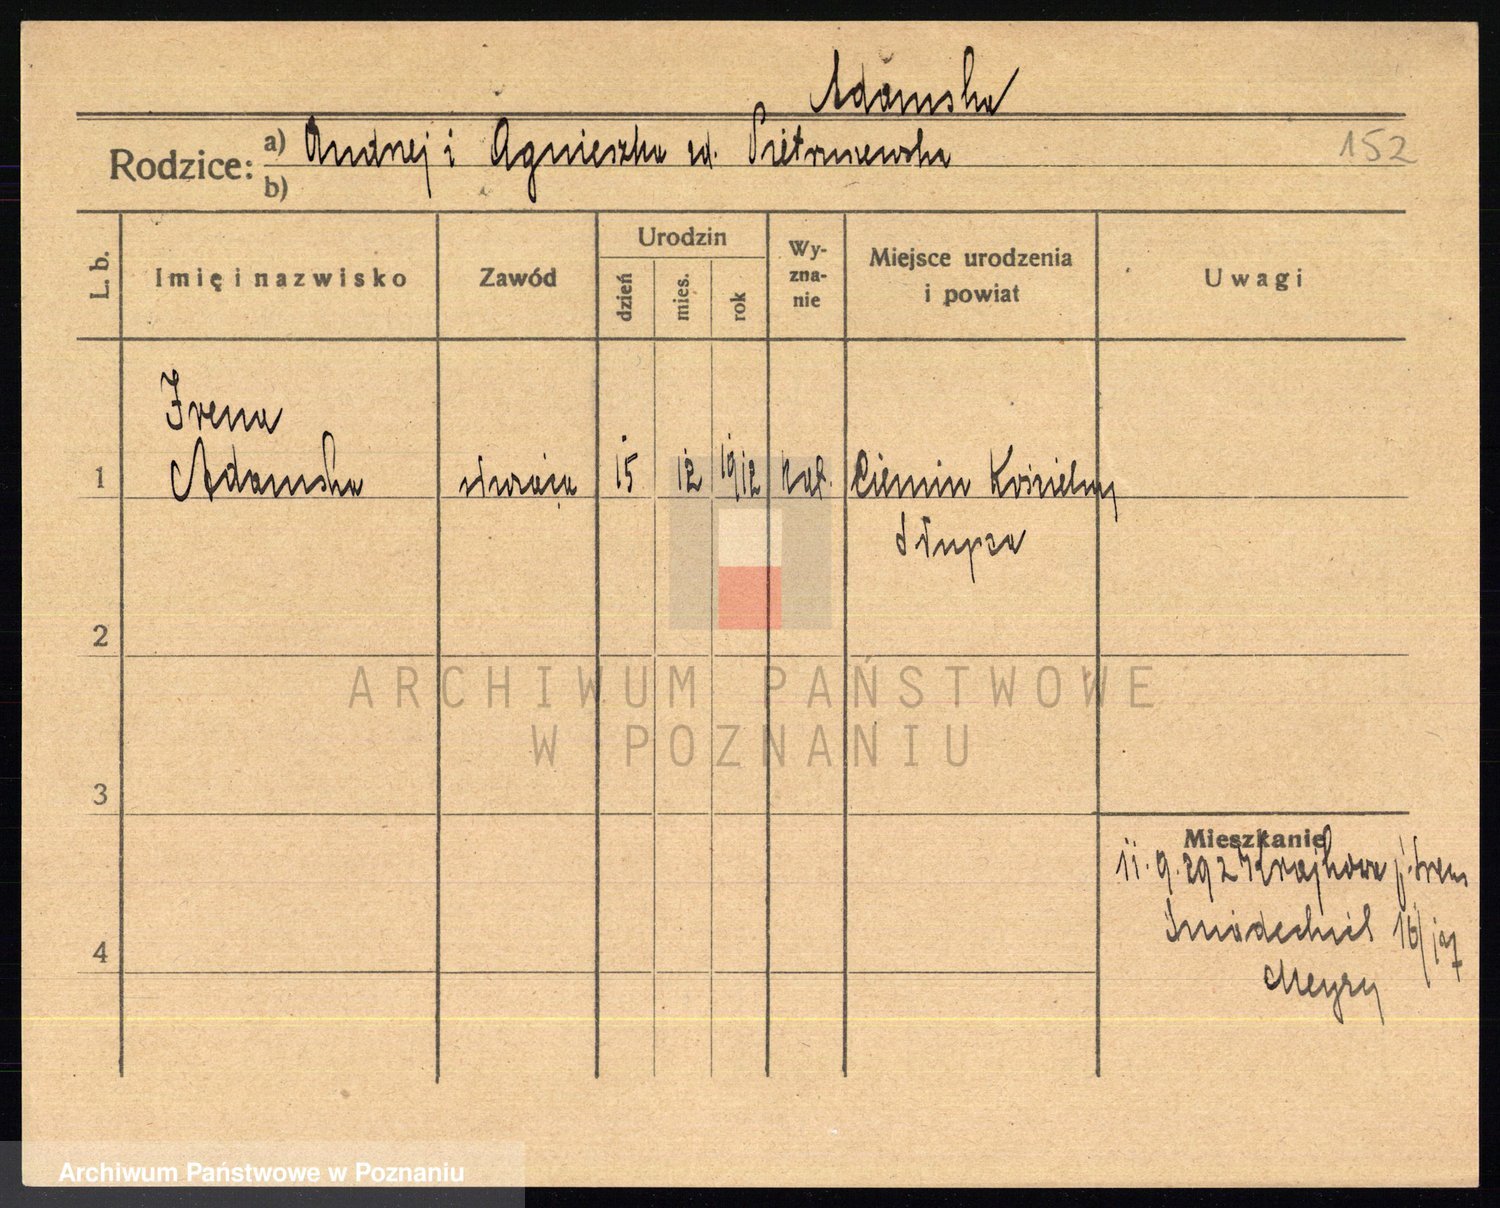 Adamska
Rodzice: a) Andrzej i Agnieszka zd. Pietruszewska
b)
152
L. b.
Imię i nazwisko
Zawód
Urodzin
dzień
mies.
rok
Wy-
zna-
nie
Miejsce urodzenia
i powiat
Uwagi
Irena
1 Adamska służąca 15 12 1912 kat. Ciemin Kościelny
Słupca
2
ARCHIWUM PAŃSTWOWE
W POZNANIU
3
Mieszkanie
11.9.29 z Krajkowa p. Śrem
4 Śniadeckich 16/
Archiwum Państwowe w Poznaniu